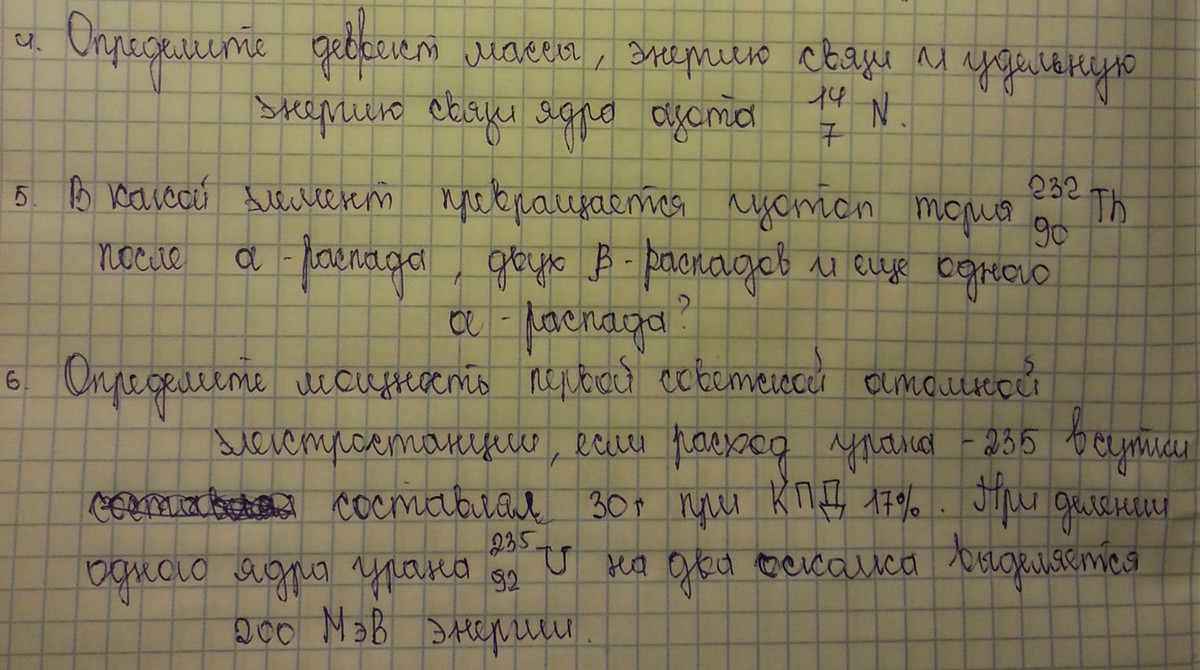 4. Определите дефект массы, энергию связи и удельную
энергию связи ядра азота ¹⁴₇N.
5. В какой элемент превращается изотоп тория ²³²₉₀Th
после α-распада, двух β-распадов и еще одного
α-распада?
6. Определите мощность первой советской атомной
электростанции, если расход урана-235 в сутки
составлял 30г при КПД 17%. При делении
одного ядра урана ²³⁵₉₂U на два осколка выделяется
200 МэВ энергии.